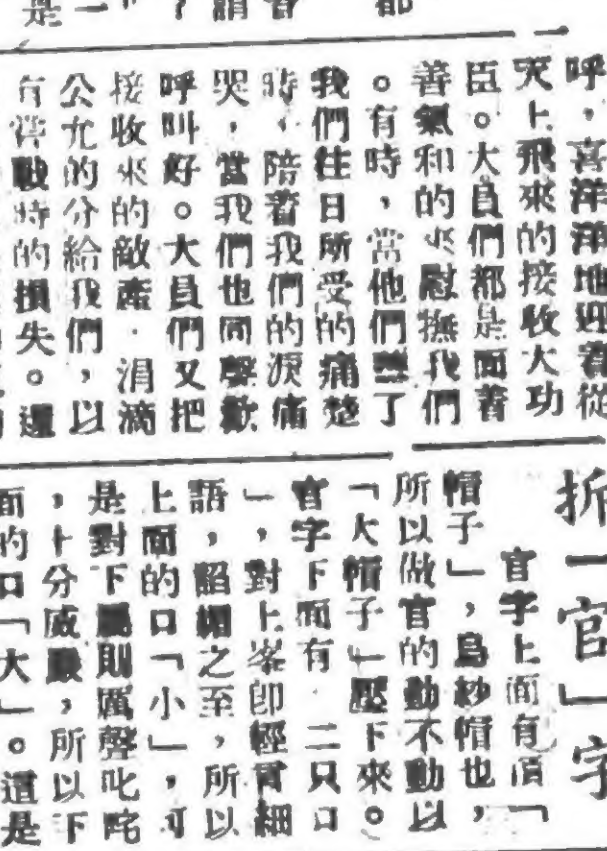 呼，喜洋洋地迎着從
天上飛來的接收大功
臣。大員們都是面着
善氣和的來慰撫我們
。有時，當他們聽了
我們往日所受的痛楚
時，陪着我們的淚痛
哭，當我們也同聲歡
呼叫好。大員們又把
接收來的敵產·涓滴
公允的分給我們，以
戰時的損失。還
折「官」字
官字上面有頂「
帽子」，烏紗帽也，
所以做官的動不動以
「大帽子」壓下來。
官字下面有·二只口
」，對上峯卽輕言細
語，諂媚之至，所以
上面的口「小」，可
是對下屬則厲聲叱咤
，十分威嚴，所以下
面的口「大」。這是